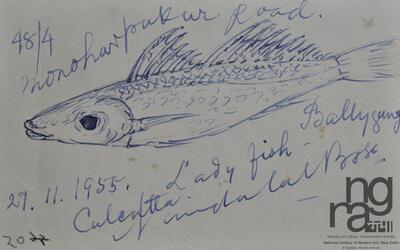 48/4
Monoharpukur Road.
Lady fish - Ballygung
27. 11. 1955.
Calcutta
Nandalal Bose
20
ngma
Ministry of Culture, Government of India
National Gallery of Modern Art, New Delhi